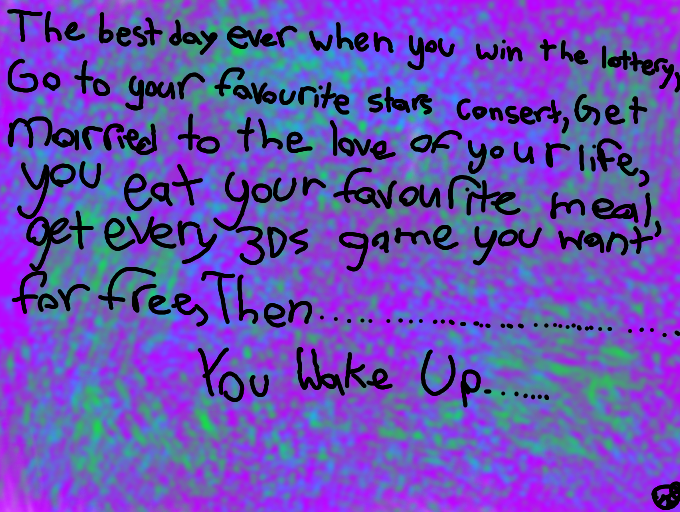 The best day ever when you win the lottery,
Go to your favourite stars consert, Get
married to the love of your life,
you eat your favourite meal,
get every 3Ds game you want
for free, Then...............................
You Wake Up.......